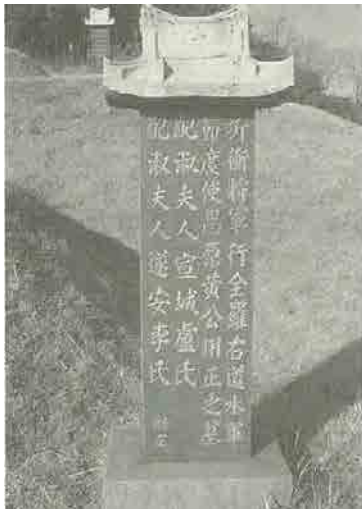 折衝將軍行全羅右道水軍
節度使昌原黃公用正之墓
配淑夫人宣城盧氏
配淑夫人遂安李氏